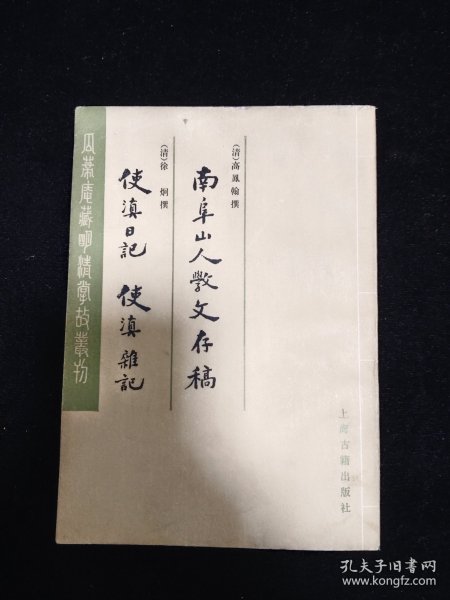 上海古籍出版社
(清)高鳳翰撰
南阜山人斅文存稿
(清)徐炯撰
使滇日記 使滇雜記
瓜蒂庵藏明清掌故叢刊
孔夫子旧书网
www.kongfz.com